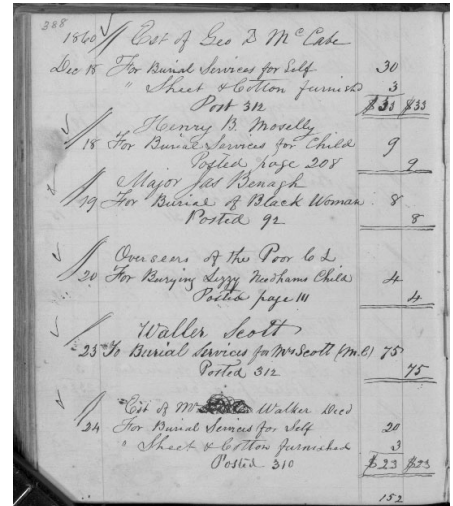 388
1860 Est of Geo D McCabe
Dec 18 For Burial Services for Self 30
" Sheet & Cotton furnished 3
Post 312 $33 $33
Henry B. Moselly
18 For Burial Services for Child 9
Posted page 208 9
Major Jas Benagh
19 For Burial of Black Woman 8
Posted 92 8
Overseers of the Poor C L
20 For Burying Lizzy Needhams Child 4
Posted page 111 4
Waller Scott
23 To Burial Services for Mrs Scott (M.E) 75
Posted 312 75
Est of Mr Walker Deed
24 For Burial Services for Self 20
" Sheet & Cotton furnished 3
Posted 310 $23 $23
152